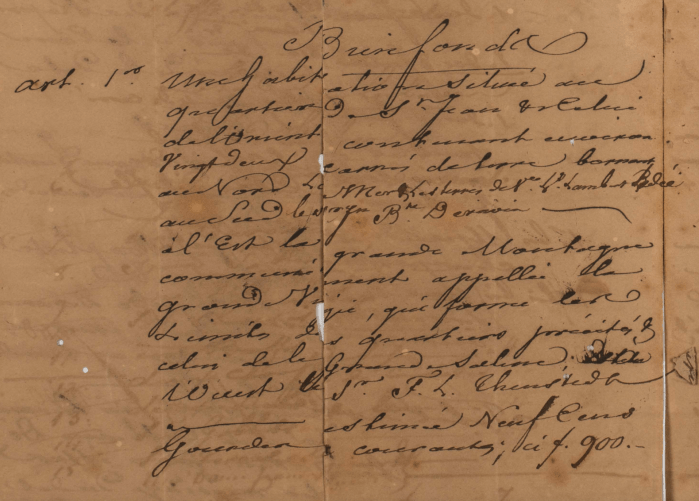 Bienfonds
art. 1er Une habitation située au
quartier de St. Jean & celui
de l'Orient contenant environ
Vingt deux carrés de terre bornant
au Nord La Mer & les terres de Vve
au Sud le Sr Jn Bte
à l'Est la grande Montagne
communément appellée la
grande Vigie, qui forme les
Limites des quartiers précités &
celui de la Grande Saline.
l'Ouest le Sr F. L.
estimée Neuf Cens
Gourdes courants; ci f. 900.-